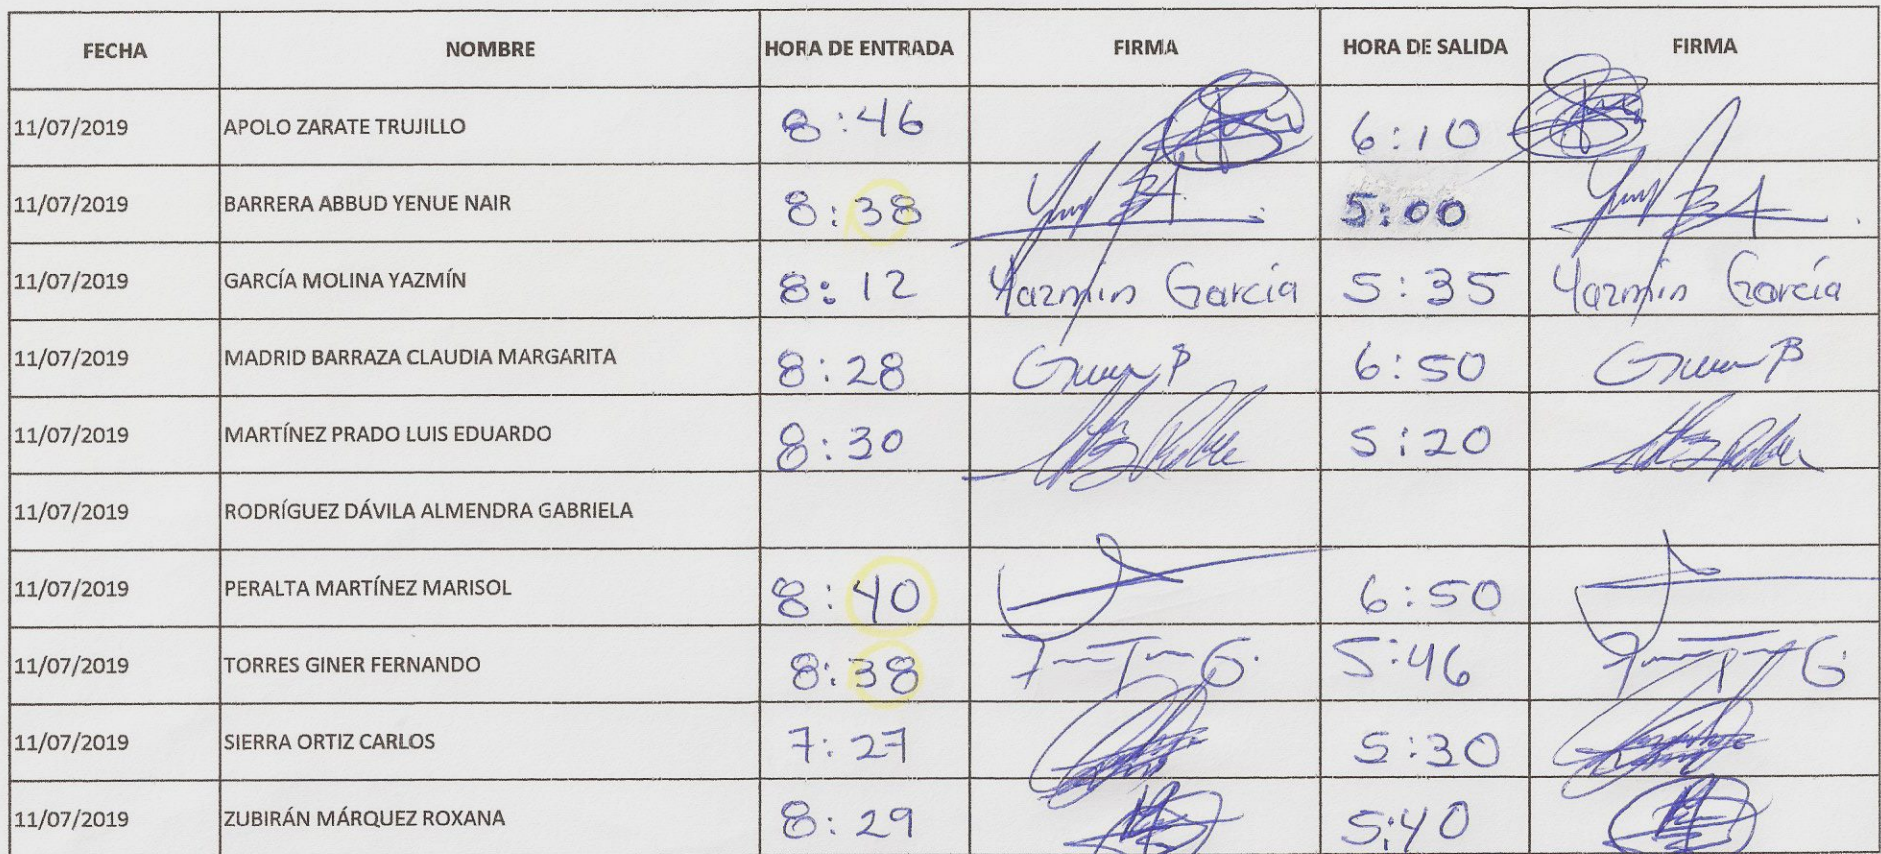 FECHA NOMBRE HORA DE ENTRADA FIRMA HORA DE SALIDA FIRMA
11/07/2019 APOLO ZARATE TRUJILLO 8:46 6:10
11/07/2019 BARRERA ABBUD YENUE NAIR 8:38 5:00
11/07/2019 GARCÍA MOLINA YAZMÍN 8:12 Yazmín García 5:35 Yazmín García
11/07/2019 MADRID BARRAZA CLAUDIA MARGARITA 8:28 6:50
11/07/2019 MARTÍNEZ PRADO LUIS EDUARDO 8:30 5:20
11/07/2019 RODRÍGUEZ DÁVILA ALMENDRA GABRIELA
11/07/2019 PERALTA MARTÍNEZ MARISOL 8:40 6:50
11/07/2019 TORRES GINER FERNANDO 8:38 5:46
11/07/2019 SIERRA ORTIZ CARLOS 7:27 5:30
11/07/2019 ZUBIRÁN MÁRQUEZ ROXANA 8:29 5:40